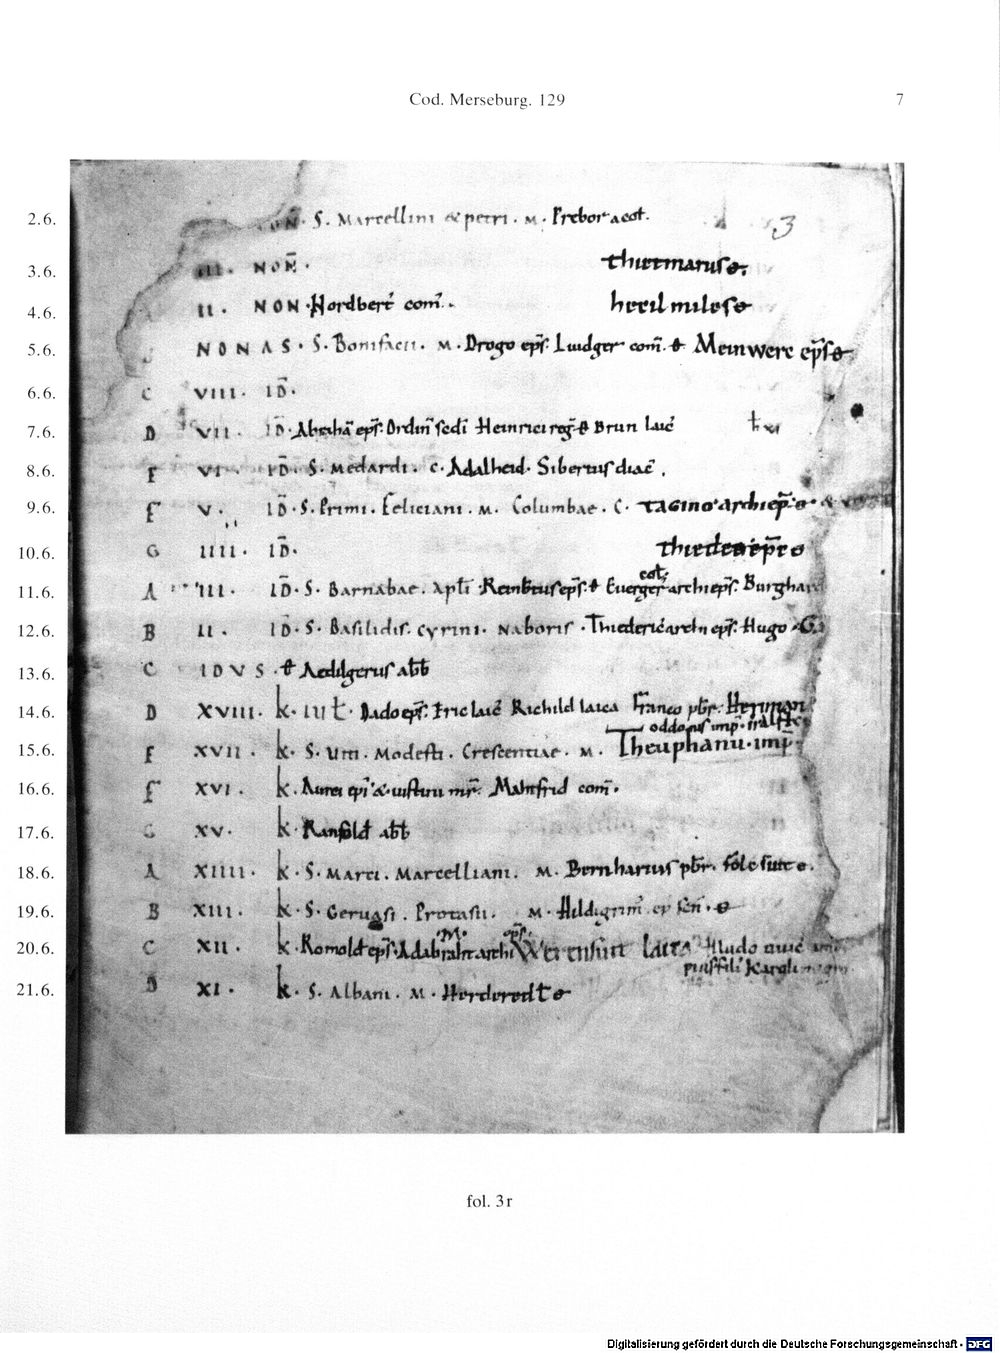 Cod. Merseburg. 129
7
2.6. NON · S. Marcellini & petri . M . Prebor acol.
3
3.6. III . NON̄ . thietmarus
4.6. II . NON · Nordbert com̄ . hecil miles
5.6. NONAS · S. Bonifacii . M . Drogo ep̄s. Liudger com̄ . Meinwerc ep̄s
6.6. C VIII . ID̄ .
7.6. D VII . ID̄ . ep̄s. Ordin̄ sedī Heinrici reḡ Brun laic̄
8.6. E VI . ID̄ . S. Medardi . C . Adalheid . Sibertus diac̄ .
9.6. F V . ID̄ . S. Primi . Feliciani . M . Columbae . C . TAGINO archiep̄
10.6. G IIII . ID̄ .
eol;
11.6. A III . ID̄ . S. Barnabae . apl̄i ep̄s. Euerger archiep̄s. Burghard
12.6. B II . ID̄ . S. Basilidis . Cyrini . Naboris . Thiederic̄ archiep̄s. Hugo
13.6. C IDVS . Aedilgerus ab̄b
14.6. D XVIII . k . iul̄ . Dado ep̄s. Eric laic̄ Richild laica Franco pb̄r. Herimon
oddonis imp̄ .
15.6. E XVII . k . S. Uiti . Modesti . Crescentiae . M . Theuphanu . imp̄
16.6. F XVI . k . Aurei ep̄i & iustini mr̄ . Mahtfrid com̄ .
17.6. G XV . k . ab̄b
18.6. A XIIII . k . S. Marci . Marcelliani . M . Bernharius pb̄r.
19.6. B XIII . k . S. Geruasi . Protasii . M . Hildigrim̄
M . ep̄s.
20.6. C XII . k . Romold ep̄s. Werensuit laica
pius filī Karoli
21.6. D XI . k . S. Albani . M .
fol. 3r
Digitalisierung gefördert durch die Deutsche Forschungsgemeinschaft - DFG